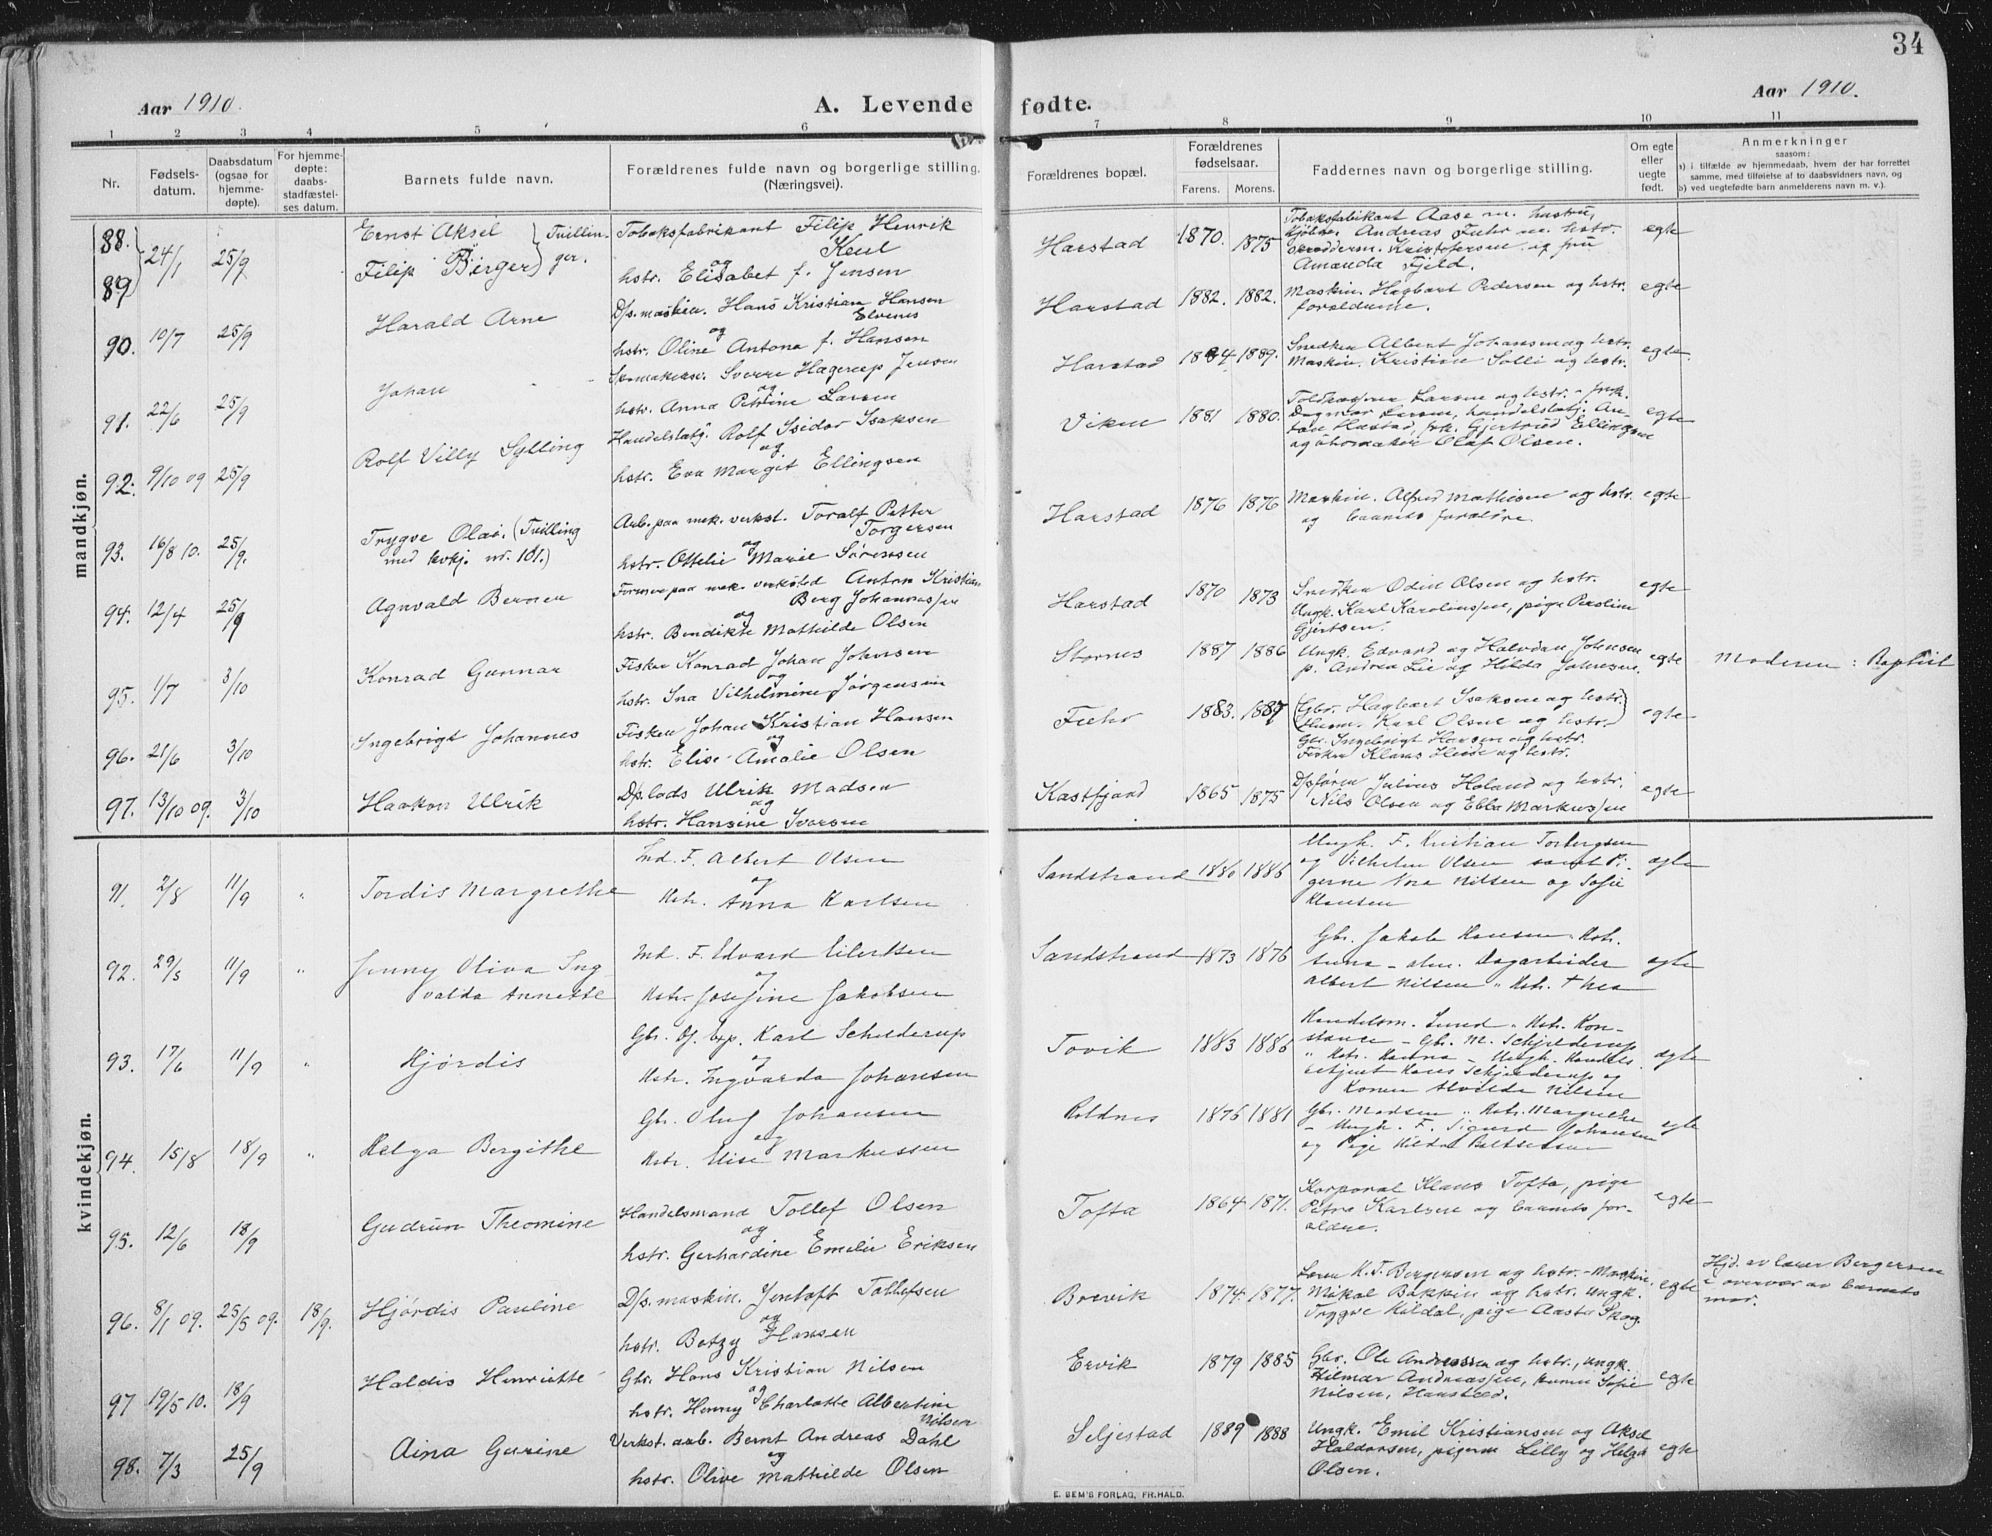 34
Aar 1910.
A. Levende fødte.
Aar 1910.
1 2 3 4 5 6 7 8 9 10 11
Nr.
Fødsels-
datum.
Daabsdatum
(ogsaa for
hjemme-
døpte).
For hjemme-
døpte:
daabs-
stadfæstel-
ses datum.
Barnets fulde navn.
Forældrenes fulde navn og borgerlige stilling.
(Næringsvei).
Forældrenes bopæl.
Forældrenes
fødselsaar.
Farens. Morens.
Faddernes navn og borgerlige stilling.
Om egte
eller
uegte
født.
Anmerkninger
saasom:
a) i tilfælde av hjemmedaab, hvem der har forrettet
samme, med tilføielse af to daabsvidners navn, og
b) ved uegtefødte barn anmelderens navn m. v.).
mandkjøn.
88.
89
24/1 25/9
Ernst Aksel
Filip Børger
Tvillin-
ger.
Tobaksfabrikant Filip Henrik
Keul
og
hstr. Elisabet f. Jensen
Harstad 1870. 1875
Tobaksfabrikant Aase m. hustru,
Kjøbm. Andreas Fuhr m. hstr.
skrædderm. Kristofersen og frü
Amanda Fjeld.
egte
90. 10/7 25/9
Harald Arne
Dps.maskin. Hans Kristian Hansen
Elvenes
og
hstr. Oline Antona f. Hansen
Harstad 1882. 1882.
Maskin. Hagbart Pedersen og hstr.
forældrene.
egte
91. 22/6 25/9
Johan
Skomakers. Sverre Hagerup Jensen
og
hstr. Anna Petrine Larsen
Harstad 1884 1889.
Snedker Albert Johansen og hstr.
Maskin. Kristian Solli og hstr.
egte
92. 9/10 09 25/9
Rolf Villy Sylling
Handelsbetj. Rolf Isidor Isaksen
og
hstr. Eva Margit Ellingsen
Viken 1881 1880.
Toldkasserer Larsen og hstr. frk.
Dagmar Larsen, handelsbetj. An-
ton Hustad, frk. Gjertrud Ellingsen
og uhrmaker Olaf Olsen.
egte
93. 16/8 10. 25/9.
Trygve Olai. (Tvilling
med kvkj. nr. 101.)
Arb. paa mek. verkst. Toralf Petter
Torgersen
og
hstr. Ottelie Marie Sørensen
Harstad 1876 1876
Maskin. Alfred Mathisen og hstr.
og barnets forældre.
egte
94. 12/4 25/9
Agnvald Berner
Former paa mek. verksted Anton Kristian
Berg Johannessen
og
hstr. Bendikte Mathilde Olsen
Harstad 1870 1873
Snedker Odin Olsen og hstr.
Ungk. Karl Karoliussen, pige Peroline
Gjertsen.
egte
95. 1/7 3/10
Konrad Gunnar
Fisker Konrad Johan Johnsen
og
hstr. Ina Vilhelmine Jørgensen
Stornes 1887 1886
Ungk. Edvard og Halvdan Johnsen
p. Andrea Lie og Hilda Johnsen.
egte
Moderen : Baptist
96. 21/6 3/10
Ingebrigt Johannes
Fisker Johan Kristian Hansen
og
hstr. Elise Amalie Olsen
1883. 1887
Gbr. Hagbart Isaksen og hstr.
Husm. Karl Olsen og hstr.
Gbr. Ingebrigt Hansen og hstr.
Fisker Klaus Heide og hstr.
egte
97. 13/10 09. 3/10
Haakon Ulrik
Dp.lods Ulrik Madsen
og
hstr. Hansine Ivarsen
Kastfjord 1865 1875
Dpsfører Julius Holand og hstr.
Nils Olsen og Ebba Markussen
egte
kvindekjøn.
91. 2/8 11/9 "
Tordis Margrethe
Ind. F. Albert Olsen
og
Hstr. Anna Karlsen
Sandstrand 1880 1886
Ungk. F. Kristian Torbergsen
og Vilhelm Olsen samt Pi-
gerne Nora Nilsen og Sofie
Klausen
egte
92. 29/5 11/9 "
Jenny Oliva Ing
valda Annette
Ind. F. Edvard Eilertsen
og
Hstr. Josefine Jakobsen
Sandstrand 1873 1876
Gbr. Jakob Hansen Hstr.
Anna – Dagarbeider
Albert Nilsen " Hstr. Thea
egte
93. 17/6 11/9 "
Hjørdis
Gbr. Df. Exp. Karl Schelderup
og
Hstr. Ingvarda Johansen
Tovik 1883 1886
Handelsm. Lund " Hstr. Kon-
stance – Gbr. M. Schjelderup
" Hstr. Karna – Ungk. Handels
betjent Hans Schjelderup og
Konen Alvilde Nilsen
egte
94. 15/8 18/9 "
Helga Bergithe
Gbr. Oluf Johansen
og
Hstr. Elise Markussen
Roldnes 1876 1881
Gbr. Madsen " Hstr. Margrethe
– Ungk. F. Sigurd Johansen
og Pige Hilda Baltsersen
egte
95. 12/6 18/9
Gudrun Theomine
Handelsmand Tollef Olsen
og
hstr. Gerhardine Emelie Eriksen
Tofta 1864 1871.
Korporal Klaus Tofta, pige
Petra Karlsen og barnets for-
ældre.
egte
96. 8/1 09. 25/5 09. 18/9.
Hjørdis Pauline
Dps. maskin. Jentoft Tollefsen
og
hstr. Botzy Hansen
Brevik 1874. 1877.
Lærer K. T. Bergersen og hstr. – Maskin.
Mikal Bakken og hstr. ungk.
Trygve Kildal, pige Aasta Skog
egte
Hjd. av lærer Bergersen
i overvær av barnets
mor.
97 19/5 10. 18/9
Haldis Henriette
Gbr. Hans Kristian Nilsen
og
hstr. Henny Charlotte Albertine
Nilsen
Ervik 1879 1885
Gbr. Ole Andreassen og hstr., ungk.
Hilmar Andreassen, konen Sofie
Nilsen, Harstad.
egte
98. 7/3 25/9
Aina Gurine
Verkst. arb. Bernt Andreas Dahl
og
hstr. Olive Mathilde Olsen
Seljestad 1889 1888
Ungk. Emil Kristiansen og Aksel
Haldorsen, pigerne Lilly og Helga
Olsen.
egte
E. SEM'S FORLAG, FR.HALD.